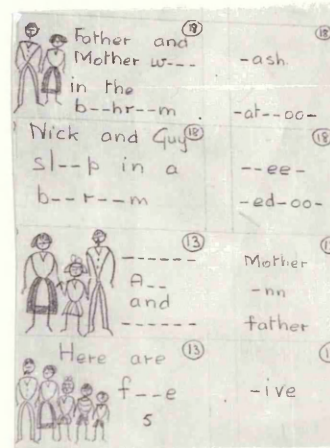 Father and 18
Mother w---
in the
b--hr--m
18
-ash
-at--oo-
Nick and Guy 18
sl--p in a
b--r--m
18
--ee-
-ed-oo-
13
------
A--
and
------
Mother
-nn
father
Here are 13
f--e
5
-ive